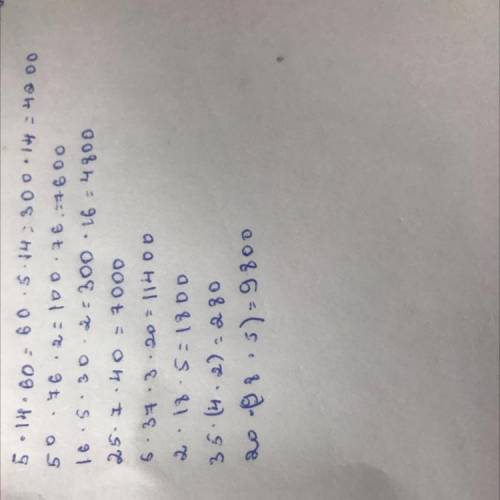 5 · 14 · 60 = 60 · 5 · 14 = 300 · 14 = 4200
50 · 76 · 2 = 100 · 76 = 7600
16 · 5 · 30 · 2 = 300 · 16 = 4800
25 · 7 · 40 = 7000
5 · 37 · 3 · 20 = 11400
2 · 18 · 5 = 1800
35 · (4 · 2) = 280
20 · (98 · 5) = 9800